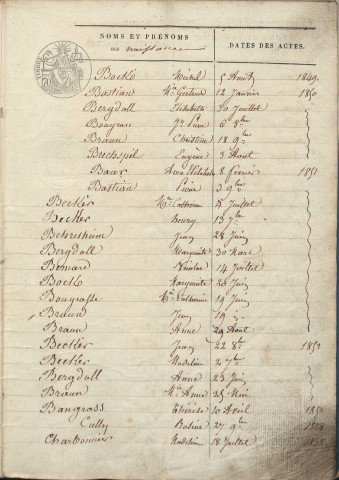 NOMS ET PRÉNOMS
DATES DES ACTES.
de naissance
TIMBRE
Bocklé Michel 5 Août 1849
Bastian Mie Gertrude 12 Janvier 1850
Bergdoll Elisabeth 30 Juillet
Bougras Jn Pierre 6 8bre
Braun Christine 18 9bre
Brechspil Eugène 3 Août
Baur Anna Elisabeth 8 Février 1851
Bastian Pierre 3 9bre
Becker Mie Catherine Juillet
Becker Henry 13 7bre
Behresheim Jean 24 Juin
Bergdoll Marguerite 30 Mars
Bernard Nicolas 14 Juillet
Bocklé Marguerite 20 Juin
Bougrasse Mie Catherine 19 Juin
Braun Jean 19
Braun Anne 29 Août
Becker Jean 22 8bre 1853
Becker Madeleine 2 7bre
Bergdoll Anne 23 Juin
Braun Mie Anne 25 Mai
Bangrass Thérèse 10 Avril
Cully Rosine 27 9bre
Charbonnier Madeleine 18 Juillet